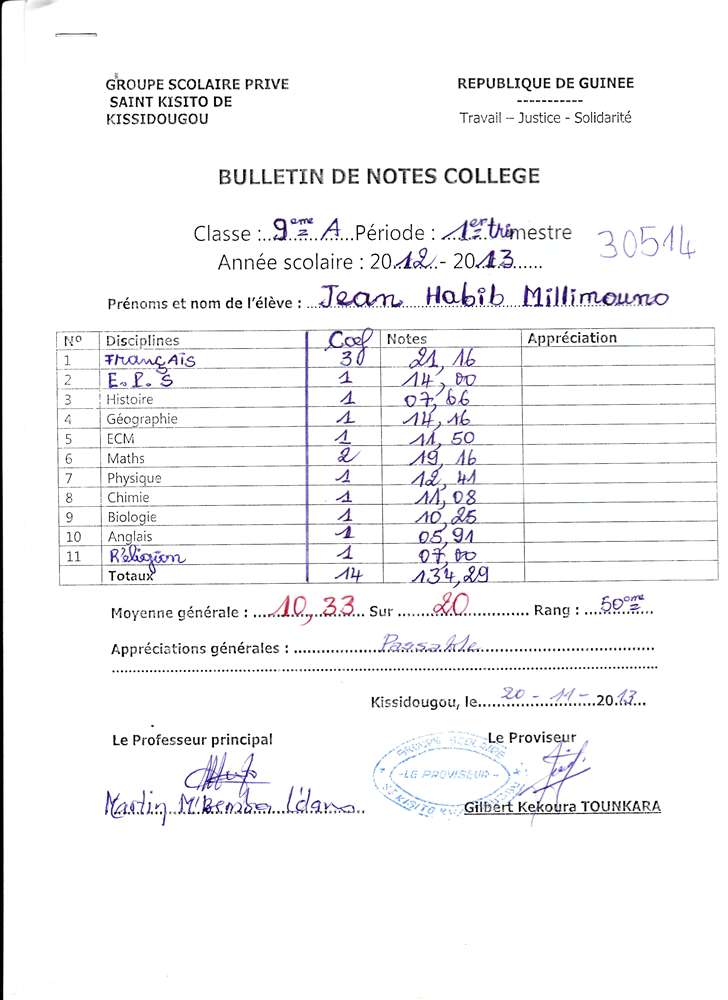 GROUPE SCOLAIRE PRIVE
SAINT KISITO DE
KISSIDOUGOU
REPUBLIQUE DE GUINEE
-----------
Travail – Justice - Solidarité
BULLETIN DE NOTES COLLEGE
Classe : 9eme A Période : 1er trimestre
30514
Année scolaire : 2012 - 2013
Prénoms et nom de l'élève : Jean Habib Millimouno
N° Disciplines Coef Notes Appréciation
1 Français 30 21,16
2 E.P.S 1 14,00
3 Histoire 1 07,66
4 Géographie 1 14,16
5 ECM 1 11,50
6 Maths 2 19,16
7 Physique 1 12,41
8 Chimie 1 11,08
9 Biologie 1 10,25
10 Anglais 1 05,91
11 Réligion 1 07,00
Totaux 14 134,29
Moyenne générale : 10,33 Sur 20 Rang : 50eme
Appréciations générales : Passable
Kissidougou, le 20 - 11 - 2013
Le Professeur principal
Le Proviseur
GROUPE SCOLAIRE
-LE PROVISEUR-
ST KISITO
Martin
Gilbert Kekoura TOUNKARA